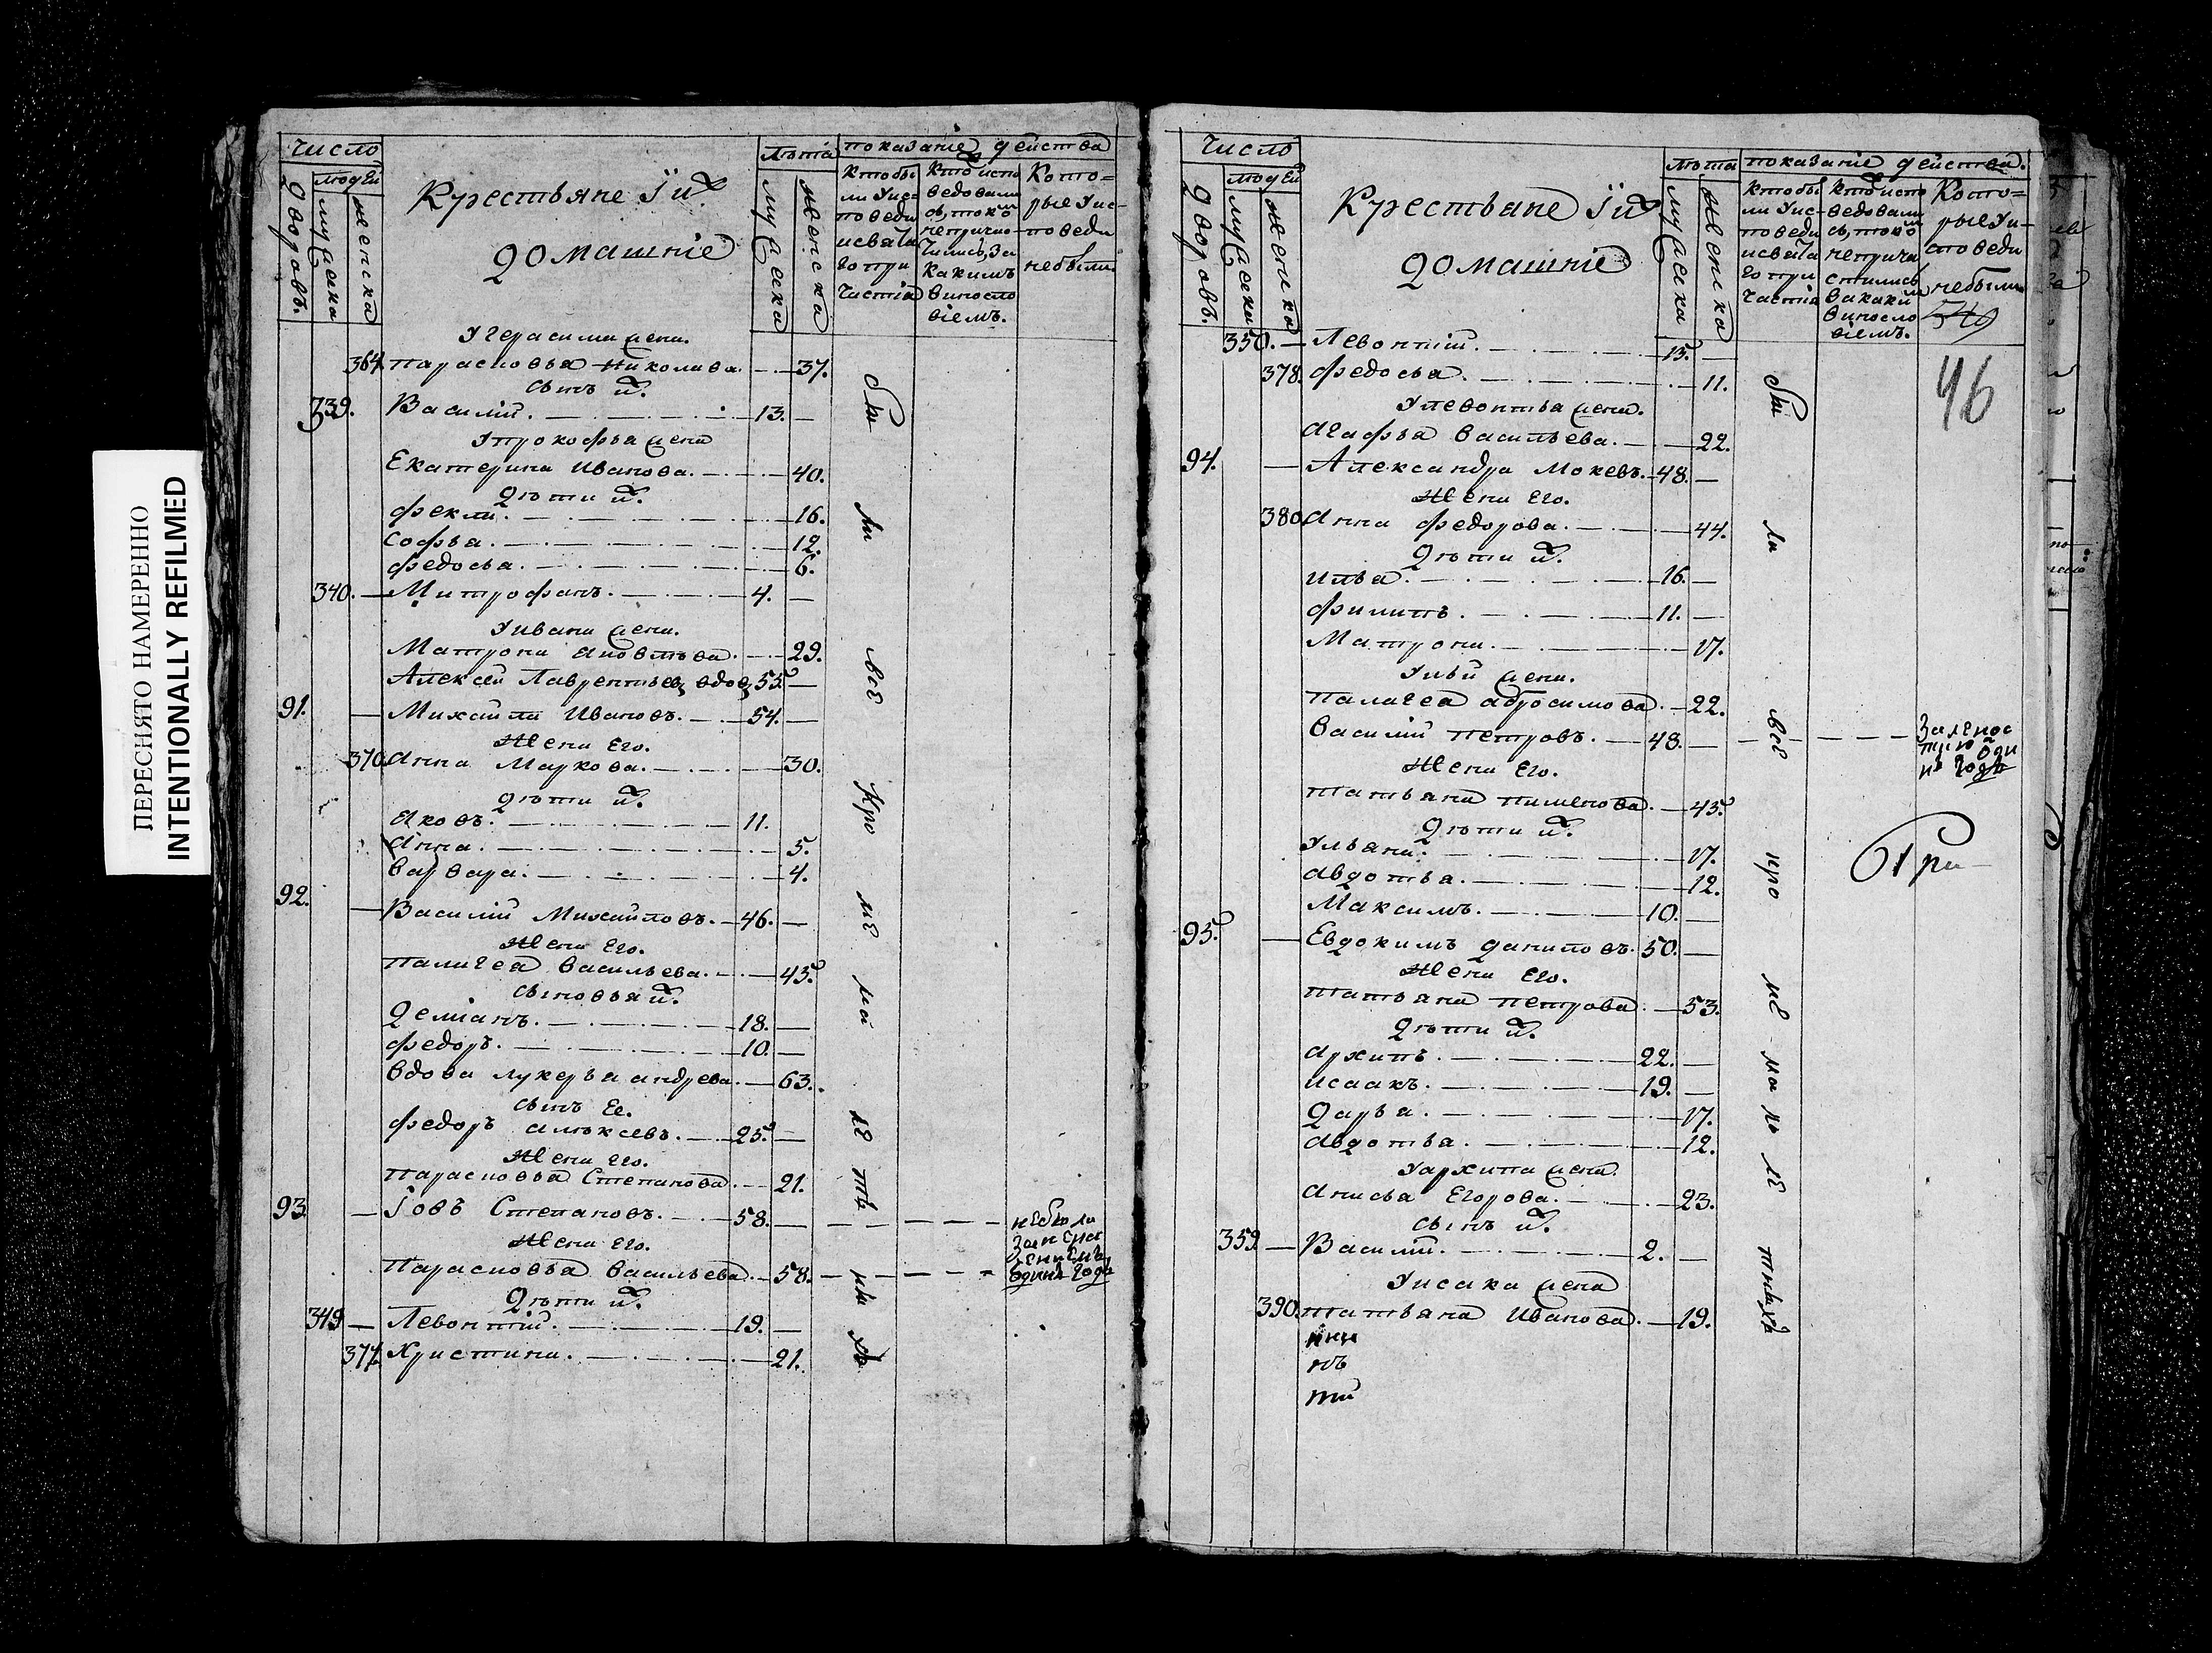 ПЕРЕСНЯТО НАМЕРЕННО
INTENTIONALLY REFILMED
Число
людей
дворовъ.
мужеска
женска
Крестьяне Їихъ
Домашніе
лѣта
мужеска
женска
показаніе действа
Ктобы
ли уис
поведи
исвята
го при
частія
Ктоиспо
ведовали
сь, токо
непричас
тились, за
какимъ
виносло
віемъ.
Кото=
рые уис-
поведи
небыли
Угерасима жена.
364. Парасковья Николаева. 37.
Сынъ их.
339. Василій. 13.
Упрокофья жена
Екатерина Иванова. 40.
Дѣти их.
Фекла. 16.
Софья. 12.
Федосья. 6.
340. Митрофанъ. 4.
Уивана жена.
Матрона Яковлева. 29.
Алексей Лаврентьевъ вдов 55.
91. Михаила Ивановъ. 54.
Жена Его.
370. Анна Маркова. 30.
Дѣти их.
Яковъ. 11.
Анна. 5.
Варвара. 4.
92. Василій Михайловъ. 46.
Жена Его.
Палагея Васильева. 45.
Сыновья их.
Деміанъ. 18.
Федоръ. 10.
Вдова лукерья андреева. 63.
Сынъ Ее.
Федоръ алѣксеевъ. 25.
Жена Его.
Парасковья Степанова. 21.
93. Іовъ Степановъ. 58.
Жена Его.
Парасковья Васильева. 58.
Дѣти их.
349 Левонтій. 19.
377. Христина. 21.
бы
ли
всѣ
кро
мѣ
ма
лѣ
тны
хъ
одинъ годъ
Число
людей
дворовъ.
мужеска
женска
Крестьяне Їих
Домашніе
лѣта
мужеска
женска
показаніе действа.
Ктобы
ли уис-
поведи
исвята
го при
частія
Ктоиспо
ведовали
сь, токо
неприча
стились
закаким
виносло
віемъ.
Кото=
рые уи-
споведи
небыли
549
46
350. Левонтій. 15.
378. Федосья. 11.
Улевонтья жена.
Агафья Васильева. 22.
94. Александра Мокевъ. 48.
Жена Его.
380. Анна Федорова. 44.
Дѣти их.
Илья. 16.
Филипъ. 11.
Матрона. 17.
Уильи жена.
Палагея абросимова. 22.
Василій Петровъ. 48.
за ленос
тию оди
нъ годъ
Жена Его.
Татьяна Пименова. 45.
Дѣти их.
Ульяна. 17.
Авдотья. 12.
Максимъ. 10.
95. Евдокимъ даниловъ. 50.
Жена Его.
Татьяна Петрова. 53.
Дѣти их.
Архипъ. 22.
Исаакъ. 19.
Дарья. 17.
Авдотья. 12.
Уархипа жена.
Анисья Егорова. 23.
Сынъ их.
359 Василій. 2.
Уисака жена
390. Татьяна Иванова. 19.
бы
ли
всѣ
кро
мѣ
ма
ло
лѣ
тныхъ